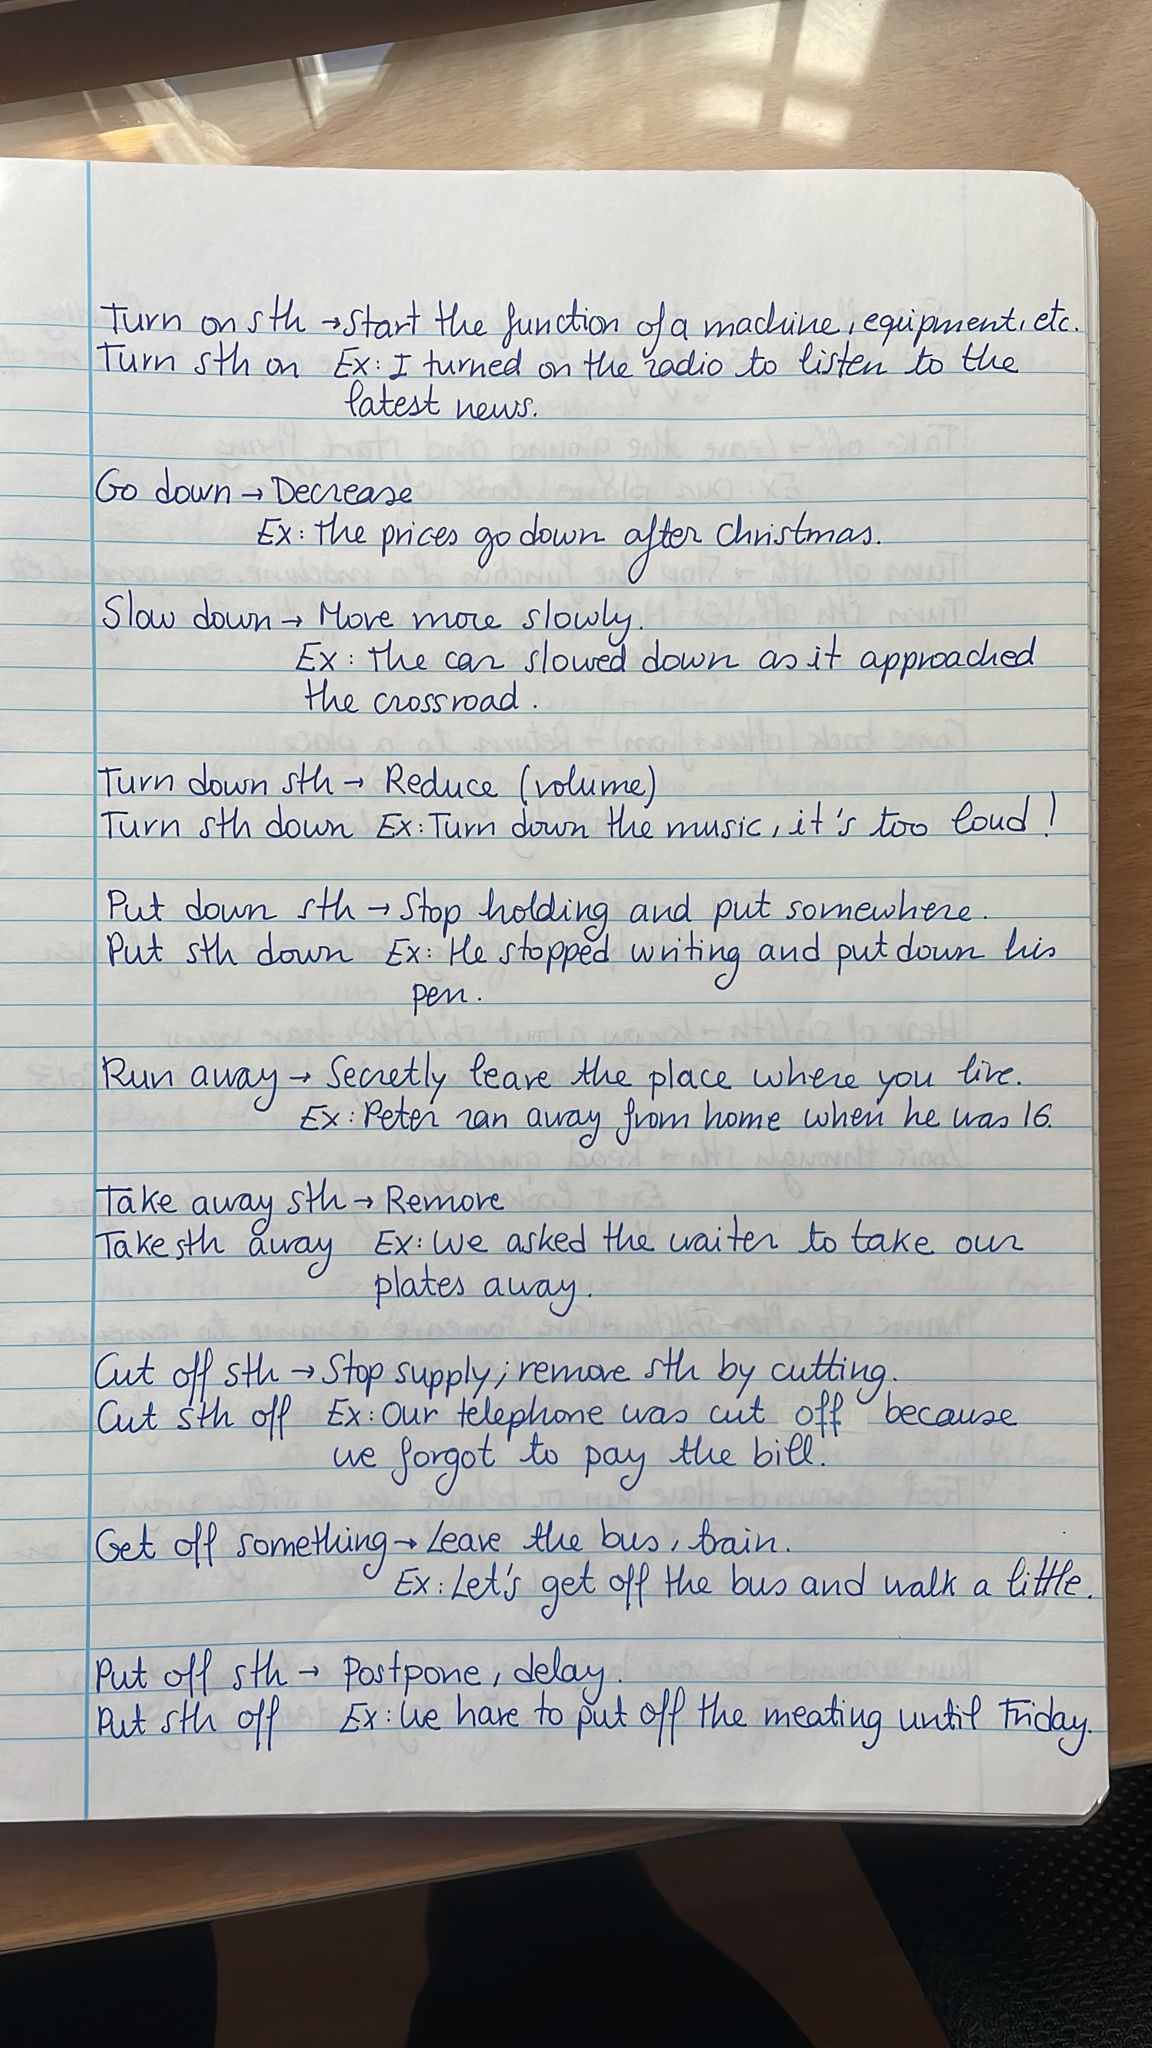 Turn on sth → Start the function of a machine, equipment, etc.
Turn sth on Ex: I turned on the radio to listen to the
latest news.
Go down → Decrease
Ex: the prices go down after Christmas.
Slow down → Move more slowly.
Ex: the car slowed down as it approached
the crossroad.
Turn down sth → Reduce (volume)
Turn sth down Ex: Turn down the music, it's too loud!
Put down sth → Stop holding and put somewhere.
Put sth down Ex: He stopped writing and put down his
pen.
Run away → Secretly leave the place where you live.
Ex: Peter ran away from home when he was 16.
Take away sth → Remove
Take sth away Ex: We asked the waiter to take our
plates away.
Cut off sth → Stop supply; remove sth by cutting.
Cut sth off Ex: Our telephone was cut off because
we forgot to pay the bill.
Get off something → Leave the bus, train.
Ex: Let's get off the bus and walk a little.
Put off sth → Postpone, delay.
Put sth off Ex: We have to put off the meating until Friday.